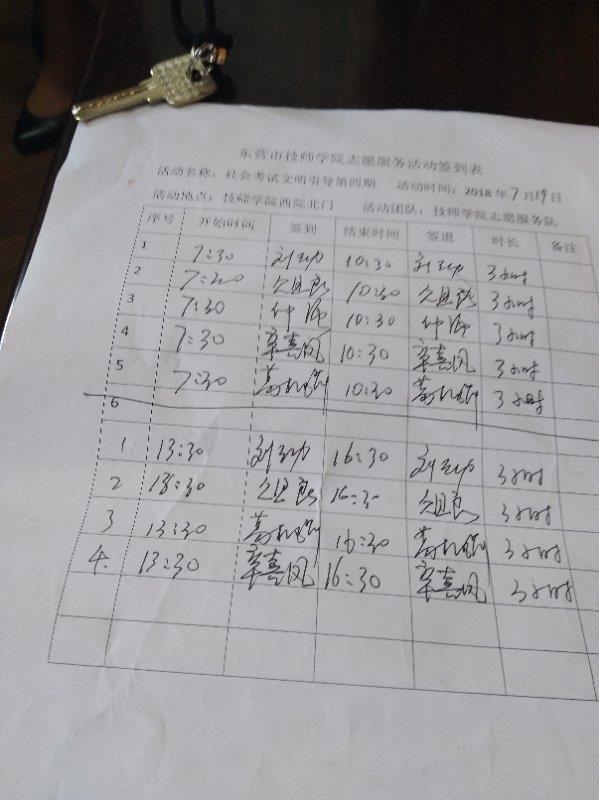 东营市技师学院志愿服务活动签到表
活动名称：社会考试文明引导第四期 活动时间：2018年7月19日
活动地点：技师学院西院北门 活动团队：技师学院志愿服务队
序号 开始时间 签到 结束时间 签退 时长 备注
1 7:30 10:30 3小时
2 7:30 10:30 3小时
3 7:30 10:30 3小时
4 7:30 辛喜凤 10:30 辛喜凤 3小时
5 7:30 10:30 3小时
6
1 13:30 16:30 3小时
2 13:30 16:30 3小时
3 13:30 16:30 3小时
4. 13:30 辛喜凤 16:30 辛喜凤 3小时